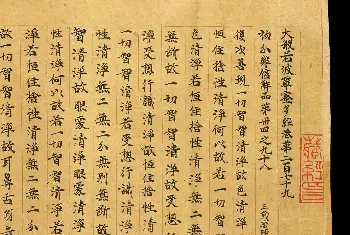 大般若波羅蜜多經卷第二百七十九
初分難信解品第卅四之九十八
三藏法師
復次善現一切智智清淨故色清淨
恒住捨性清淨何以故若一切智智
色清淨若恒住捨性清淨無二無
無斷故一切智智清淨故受想
淨受想行識清淨故恒住捨性清
一切智智清淨若受想行識清淨
性清淨無二無二分無別無斷故
智清淨故眼處清淨眼處清淨
性清淨何以故若一切智智清淨若
淨若恒住捨性清淨無二無二
故一切智智清淨故耳鼻舌身